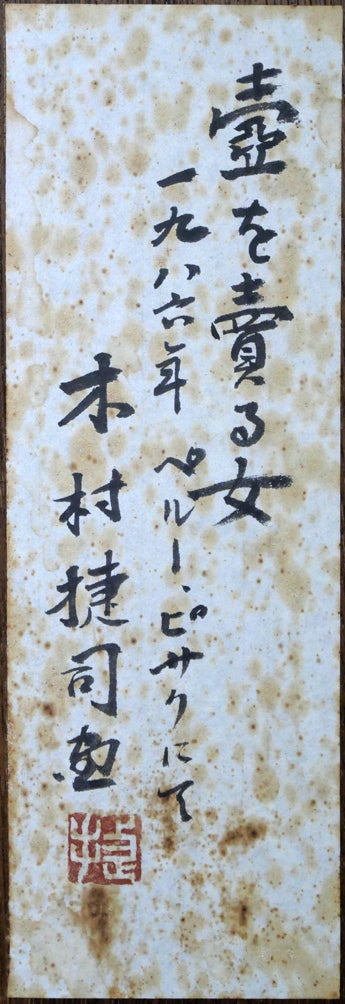 壺を賣る女
一九八六年 ペルー・ピサクにて
木村捷司画
捷